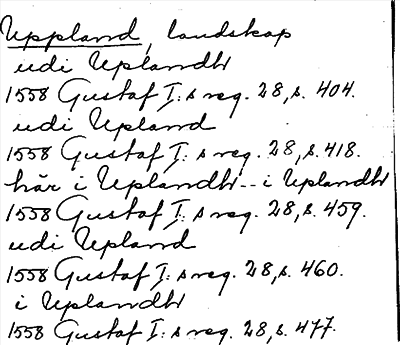 Uppland, landskap
udi Uplandh
1558 Gustaf I:s reg. 28, s. 404.
udi Upland
1558 Gustaf I:s reg. 28, s. 418.
här i Uplandh -- i Uplandh
1558 Gustaf I:s reg. 28, s. 459.
udi Upland
1558 Gustaf I:s reg. 28, s. 460.
i Uplandh
1558 Gustaf I:s reg. 28, s. 477.